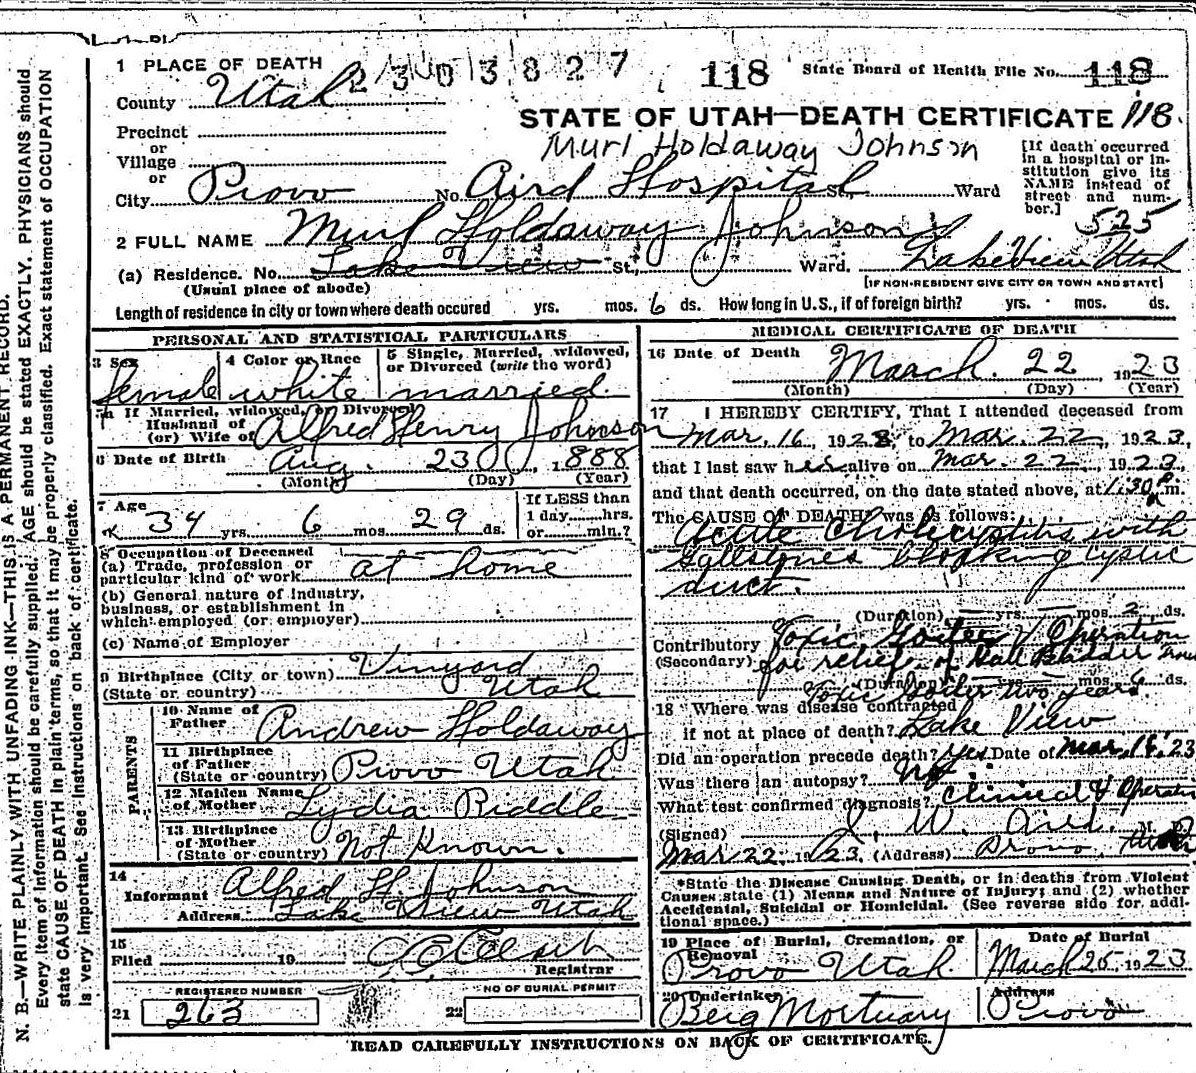 1 PLACE OF DEATH 2303827 118 State Board of Health File No. 118
County Utah
STATE OF UTAH—DEATH CERTIFICATE 118.
Precinct
or
Village
or
Murl Holdaway Johnson
City Provo No. Aird Hospital St., Ward
[If death occurred in a hospital or institution give its NAME instead of street and number.]
525
2 FULL NAME Murl Holdaway Johnson
(a) Residence. No. Lake View St., Ward. Lake View Utah
(Usual place of abode) [IF NON-RESIDENT GIVE CITY OR TOWN AND STATE]
Length of residence in city or town where death occured yrs. mos. 6 ds. How long in U.S., if of foreign birth? yrs. mos. ds.
PERSONAL AND STATISTICAL PARTICULARS
3 Sex female
4 Color or Race white
5 Single, Married, widowed, or Divorced (write the word) married.
5a If Married, widowed, or Divorced
Husband of
(or) Wife of Alfred Henry Johnson
6 Date of Birth Aug. 23 1888
(Month) (Day) (Year)
7 Age 34 yrs. 6 mos. 29 ds.
If LESS than
1 day hrs.
or min.?
8 Occupation of Deceased
(a) Trade, profession or
particular kind of work at home
(b) General nature of industry,
business, or establishment in
which employed (or employer)
(c) Name of Employer
9 Birthplace (City or town) Vinyard
(State or country) Utah
PARENTS
10 Name of Father Andrew Holdaway
11 Birthplace of Father (State or country) Provo Utah
12 Maiden Name of Mother Lydia Riddle
13 Birthplace of Mother (State or country) Not Known.
14
Informant Alfred H. Johnson
Address Lake View Utah
15
Filed 19
Registrar
REGISTERED NUMBER
21 263
NO OF BURIAL PERMIT
22
MEDICAL CERTIFICATE OF DEATH
16 Date of Death March. 22 1923
(Month) (Day) (Year)
17 I HEREBY CERTIFY, That I attended deceased from
Mar. 16, 1923, to Mar. 22, 1923,
that I last saw her alive on Mar. 22, 1923,
and that death occurred, on the date stated above, at 1:30 m.
The CAUSE OF DEATH was as follows:
Acute Cholicystitis with
gallstones blocking cystic
duct.
(Duration) — yrs. — mos. 2 ds.
Contributory Toxic Goiter Operation
(Secondary) for relief of Gall Bladder
(Duration) yrs. mos. 6 ds.
Toxic Goiter two years.
18 Where was disease contracted
if not at place of death? Lake View
Did an operation precede death? yes Date of Mar. 16, 23
Was there an autopsy? No
What test confirmed diagnosis? Clinical & Operation
(Signed) J. W. Aird. M. D
Mar 22 1923 (Address) Provo, Utah
*State the Disease Causing Death, or in deaths from Violent
Causes state (1) Means and Nature of Injury; and (2) whether
Accidental, Suicidal or Homicidal. (See reverse side for additional space.)
19 Place of Burial, Cremation, or Removal Provo Utah.
Date of Burial March 25, 1923
20 Undertaker Berg Mortuary
Address Provo
READ CAREFULLY INSTRUCTIONS ON BACK OF CERTIFICATE.
N. B.—WRITE PLAINLY WITH UNFADING INK—THIS IS A PERMANENT RECORD.
Every item of information should be carefully supplied. AGE should be stated EXACTLY. PHYSICIANS should
state CAUSE OF DEATH in plain terms, so that it may be properly classified. Exact statement of OCCUPATION
is very important. See instructions on back of certificate.